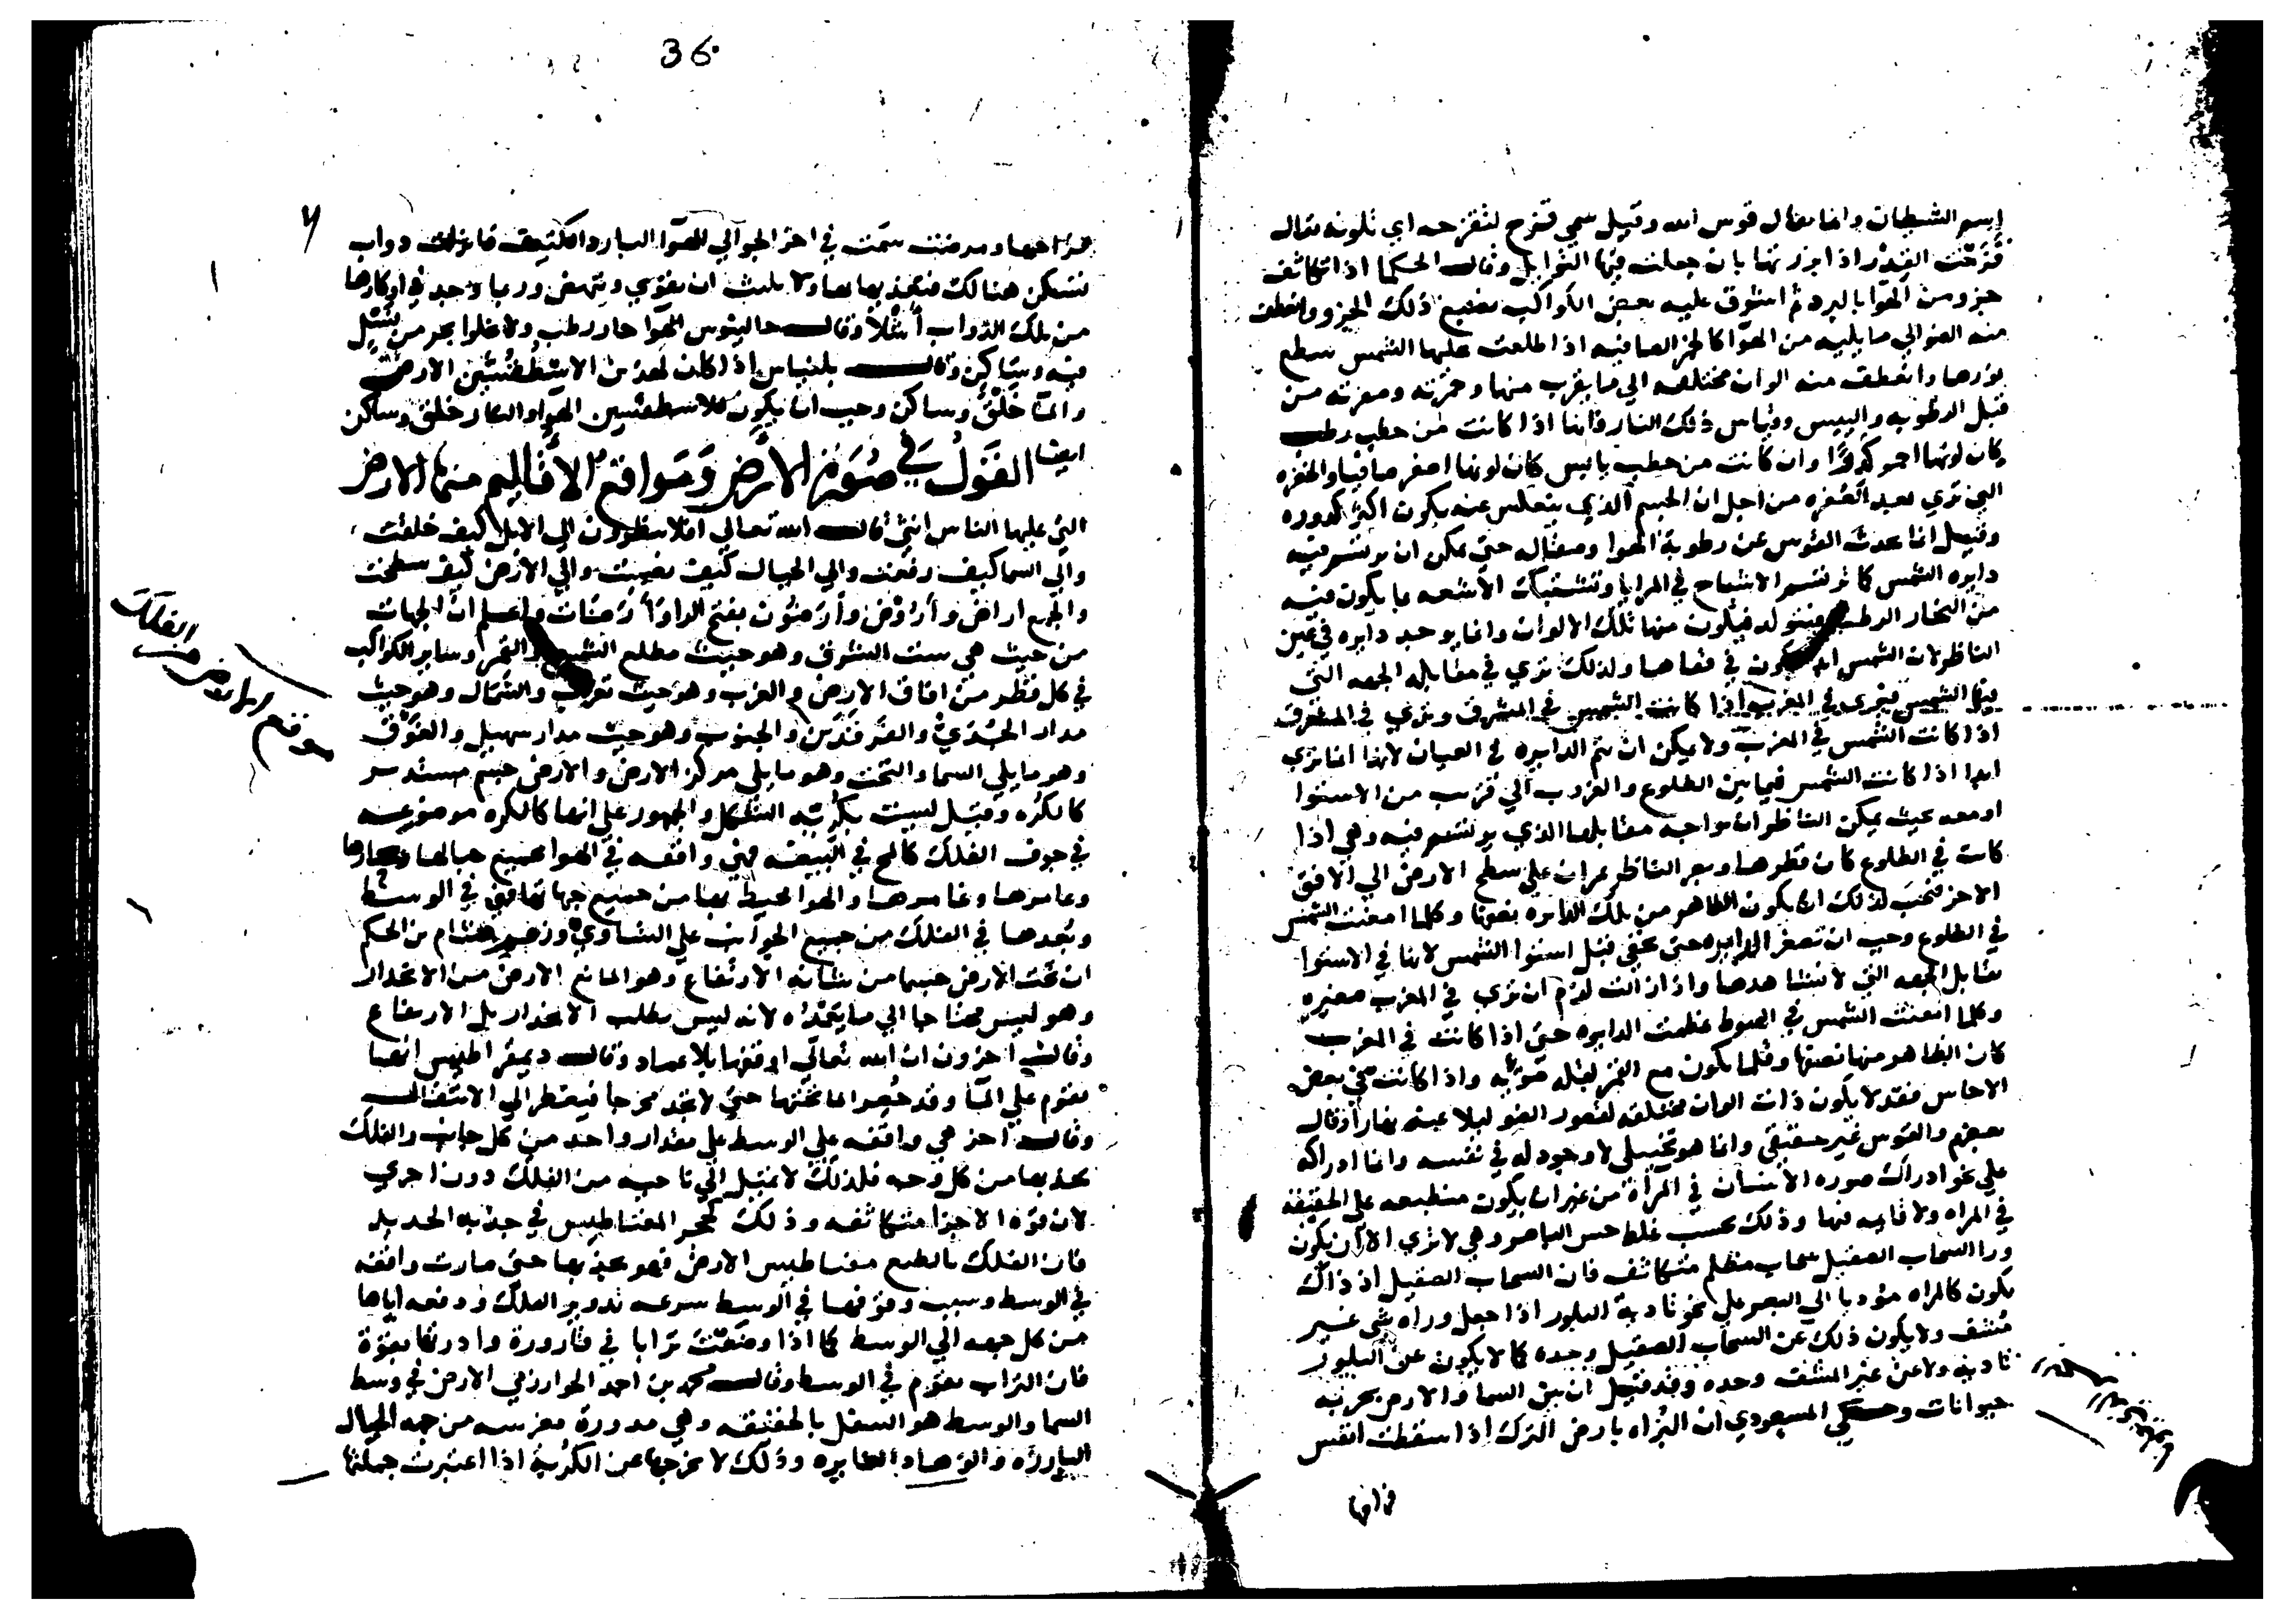 اسم الشيطان وانما يقال قوس الله وقيل سمي قزح لتقزحه اي تلونه يقال
قزحت القدر اذا ابزرتها بان جعلت فيها التوابل وقالت الحكما اذا تكاثف
جزو من الهوا بالبرد ثم اشرق عليه بعض الكواكب ذلك الجزو وانعطف
منه الضو الي ما يليه من الهوا كالخمر الصافيه اذا طلعت عليها الشمس سطع
نورها وانعطف منه الوان مختلفه الي ما يقرب منها وحمرته وصفرته من
قبل الرطوبه واليبس وقياس ذلك النار فانها اذا كانت من حطب رطب
كان لونها احمر كدرا وان كانت من حطب يابس كان لونها اصفر صافيا والخضره
التي تري بعد الصفره من اجل ان الجسم الذي ينعكس عنه يكون اكثر كدوره
وقيل انما يحدث القوس عن رطوبة الهوا وصقاله حتي يمكن ان يرتسم فيه
دايره الشمس كما ترتسم الاشباح في المرايا وتشتبك الاشعه بما يكون فيه
من البخار الرطب فيتولد منها تلك الالوان وانما يوجد دايره في عين
الناظر لان الشمس ابدا تكون في قفاها ولذلك تري في مقابله الجهه التي
فيها الشمس فتري في المغرب اذا كانت الشمس في المشرق وتري في المشرق
اذا كانت الشمس في المغرب ولا يمكن ان تتم الدايره في العيان لانها انما تري
ابدا اذا كانت الشمس فيما بين الطلوع والغروب الي قرب من الاستوا
او معه بحيث يمكن الناظر ان يواجه مقابلها الذي يرتسم فيه وهي اذا
كانت في الطلوع كان قطرها وبصر الناظر يمران علي سطح الارض الي الافق
الاخر فيجب لذلك ان يكون الظاهر من تلك الدايره نصفها وكلما امعنت الشمس
في الطلوع وجب ان تصغر الدايره حتي تخفي قبل استوا الشمس لانها في الاستوا
تقابل الجهه التي لا نشاهدها واذا زالت لزم ان تري في المغرب صغيره
وكلما امعنت الشمس في الهبوط عظمت الدايره حتي اذا كانت في المغرب
كان الظاهر منها نصفها وقلما يكون مع القمر لقله ضوئه واذا كانت في بعض
الاحايين فقد لا يكون ذات الوان مختلفه لقصور الضو ليلا عنه نهارا وقال
بعضهم والقوس غير حقيقي وانما هو تخييلي لا وجود له في نفسه وانما ادراكه
علي نحو ادراك صوره الانسان في المرآة من غير ان يكون منطبعه علي الحقيقه
في المراه ولا قايمه فيها وذلك بحسب غلط حس الباصر وهي لا تري الا ان يكون
ورا السحاب الصقيل سحاب مظلم متكاثف فان السحاب الصقيل اذ ذاك
يكون كالمراه مؤديا الي البصر علي نحو تادية البلور اذا جعل وراه شي غير
مشف ولا يكون ذلك عن السحاب الصقيل وحده كما لا يكون عن البلور
تاديه ولا عن غير المشف وحده وقد قيل ان بين السما والارض بحر فيه
حيوانات وحكي المسعودي ان البزاه بارض الترك اذا سقطت انفس
36
فراخها ومرضت سمت في اخر الجو الي الهوا البارد الكثيف فانزلت دواب
تسكن هنالك فتغذيها بها ولا يلبث ان يقوي وينهض وربما وجد في اوكارها
من تلك الدواب اشلا وقال جالينوس الهوا حار رطب ولا يخلوا بحر من
فيه وساكن وقال بليناس اذا كان لهذين الاسطقسين الارض
والما خلق وساكن وجب ان يكون للاسطقسين الهوا والنار خلق وساكن
ايضا القول في صورة الارض ومواقع الاقاليم منها الارض
التي عليها الناس انثي قال الله تعالي افلا ينظرون الي الابل كيف خلقت
والي السما كيف رفعت والي الجبال كيف نصبت والي الارض كيف سطحت
والجمع اراض واروض وارضون بفتح الراو ارضات واعلم ان الجهات
من حيث هي ست الشرق وهو حيث مطلع الشمس والقمر وساير الكواكب
في كل قطر من افاق الارض والغرب وهو حيث تغرب والشمال وهو حيث
مدار الجدي والفرقدين والجنوب وهو حيث مدار سهيل والفوق
وهو ما يلي السما والتحت وهو ما يلي مركز الارض والارض جسم مستدير
كالكره وقيل ليست بكرية الشكل والجمهور علي انها كالكره موضوعه
في جوف الفلك كالمح في البيضه فهي واقفه في الهوا بجميع جبالها وبحارها
وعامرها وغامرها والهوا محيط بها من جميع جهاتها فهي في الوسط
وبعدها في الفلك من جميع الجوانب علي التساوي وزعم هشام بن الحكم
ان تحت الارض جسما من شانه الارتفاع وهو المانع الارض من الانحدار
وهو ليس محتاجا الي ما يعمده لانه ليس يطلب الانحدار بل الارتفاع
وقال اخرون ان الله تعالي اوقفها بلا عماد وقال ديمقراطيس انها
تقوم علي الما وقد حصر الما تحتها حتي لا يجد مخرجا فيضطر الي الانتقال
وقال اخر هي واقفه علي الوسط علي مقدار واحد من كل جانب والفلك
يجذبها من كل وجه فلذلك لا تميل الي ناحيه من الفلك دون اخري
لان قوة الاجزا متكافئه وذلك كحجر المغناطيس في جذبه الحديد
فان الفلك بالطبع مغناطيس الارض فهو يجذبها حتي صارت واقفه
في الوسط وسبب وقوفها في الوسط سرعه تدوير الفلك ودفعه اياها
من كل جهه الي الوسط كما اذا وضعت ترابا في قارورة وادرتها بقوة
فان التراب يقوم في الوسط وقال محمد بن احمد الخوارزمي الارض في وسط
السما والوسط هو السفل بالحقيقه وهي مدورة مضرسه من جهه الجبال
البارزه والوهاد الغايره وذلك لا يخرجها عن الكريه اذا اعتبرت جملتها
موقع الارض من الفلك